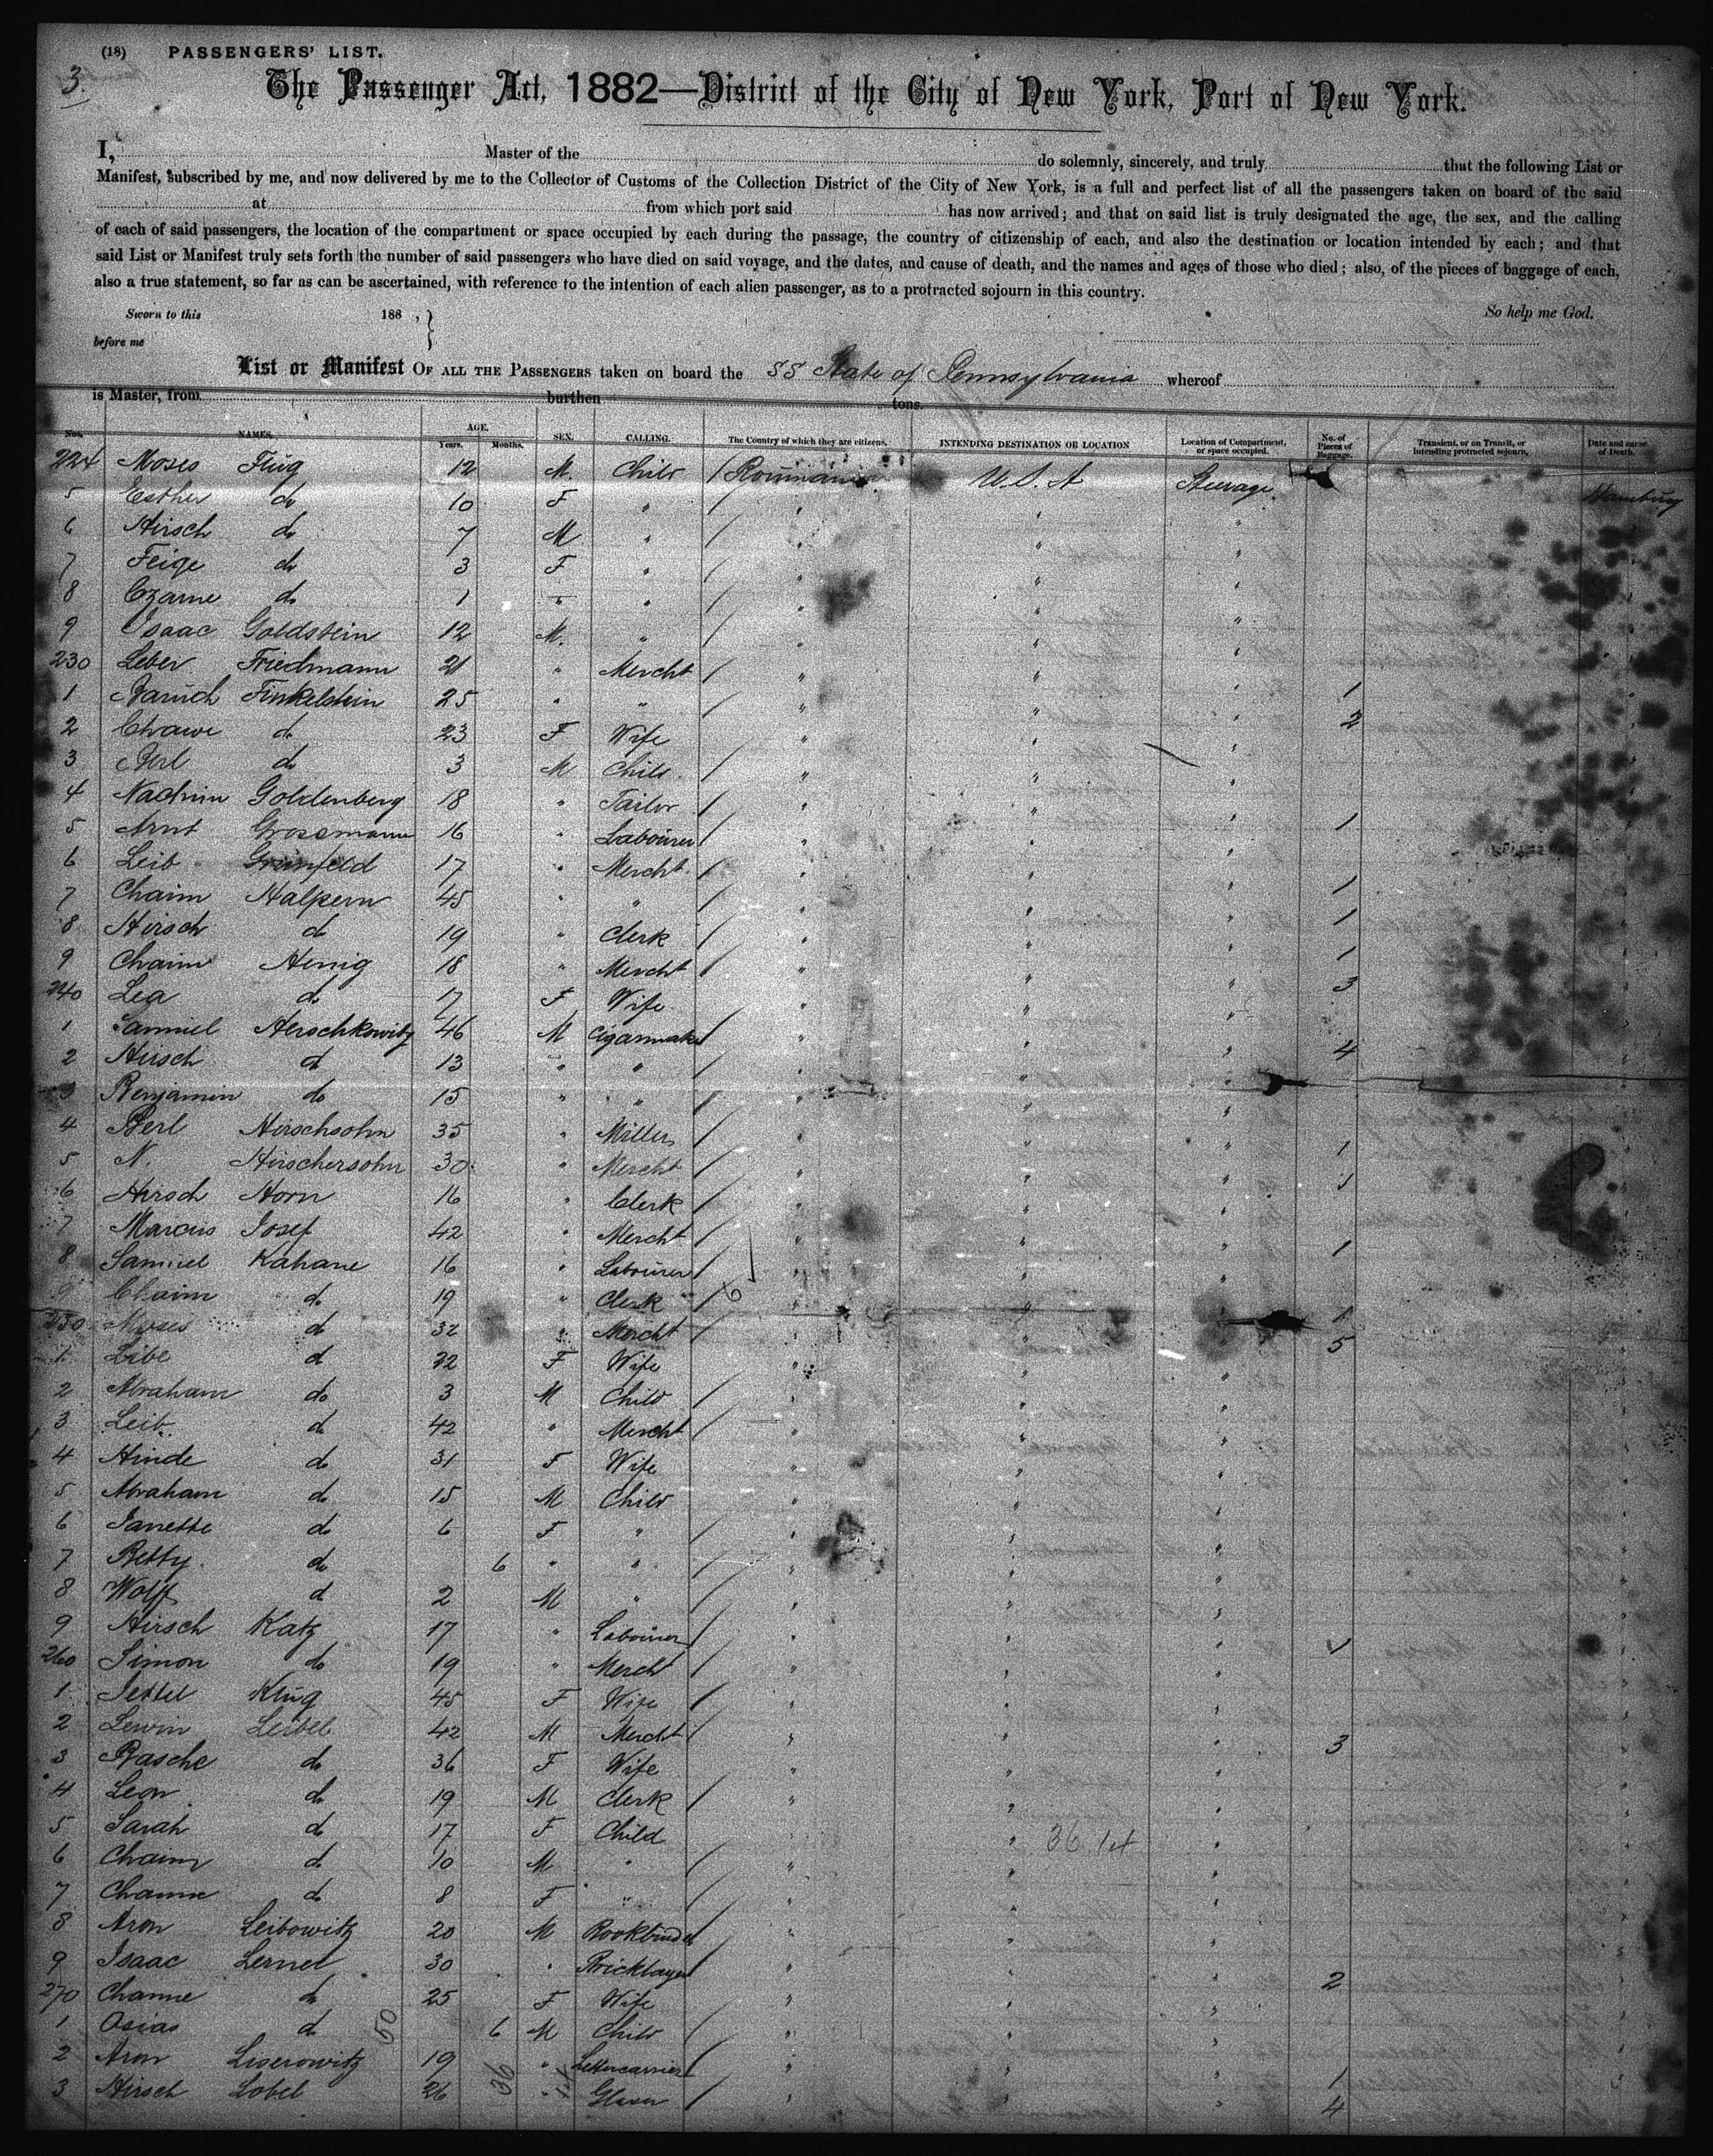 (18) PASSENGERS' LIST.
3.
The Passenger Act, 1882—District of the City of New York, Port of New York.
I, Master of the do solemnly, sincerely, and truly that the following List or
Manifest, subscribed by me, and now delivered by me to the Collector of Customs of the Collection District of the City of New York, is a full and perfect list of all the passengers taken on board of the said
at from which port said has now arrived; and that on said list is truly designated the age, the sex, and the calling
of each of said passengers, the location of the compartment or space occupied by each during the passage, the country of citizenship of each, and also the destination or location intended by each; and that
said List or Manifest truly sets forth the number of said passengers who have died on said voyage, and the dates, and cause of death, and the names and ages of those who died; also, of the pieces of baggage of each,
also a true statement, so far as can be ascertained, with reference to the intention of each alien passenger, as to a protracted sojourn in this country.
Sworn to this 188 , } So help me God.
before me
List or Manifest OF ALL THE PASSENGERS taken on board the SS State of Pennsylvania whereof
is Master, from burthen tons.
Nos. NAMES. AGE. Years. Months. SEX. CALLING. The Country of which they are citizens. INTENDING DESTINATION OR LOCATION Location of Compartment, or space occupied. No. of Pieces of Baggage. Transient, or on Transit, or intending protracted sojourn. Date and cause of Death.
224 Moses Flug 12 M. Child / Roumania U.S.A Steerage Hamburg
5 Esther do 10 F " " " "
6 Hirsch do 7 M " / " " "
7 Feige do 3 F " / " " "
8 Czarne do 1 " " / " " "
9 Isaac Goldstein 12 M. " / " " "
230 Leber Friedmann 21 " Mercht / " " " 1
1 Baruch Finkelstein 25 " " / " " " 2
2 Chawe do 23 F Wife " " "
3 Berl do 3 M Child / " " "
4 Nachim Goldenberg 18 " Tailor / " " " 1
5 Arnt Grossmann 16 " Labourer / " " "
6 Leib Grünfeld 17 " Mercht / " " " 1
7 Chaim Halpern 45 " " / " " " 1
8 Hirsch do 19 " Clerk / " " " 1
9 Chaim Henig 18 " Mercht / " " " 3
240 Lea do 17 F Wife " " "
1 Samuel Herschkowitz 46 M Cigarmaker / " " " 4
2 Hirsch do 13 " " / " " "
3 Benjamin do 15 " " / " " "
4 Berl Hirschsohn 35 " Miller / " " " 1
5 N. Hirschersohn 30 " Mercht / " " " 1
6 Hirsch Horn 16 " Clerk / " " "
7 Marcus Josef 42 " Mercht / " " " 1
8 Samuel Kahane 16 " Labourer / " " "
9 Chaim do 19 " Clerk / 6 " " " 1
250 Moses do 32 " Mercht / " " " 5
1 Libe do 22 F Wife " " "
2 Abraham do 3 M Child / " " "
3 Leib do 42 " Mercht / " " "
4 Hinde do 31 F Wife " " "
5 Abraham do 15 M Child " " "
6 Janette do 6 F " / " " "
7 Betty do 6 " " / " " "
8 Wolff do 2 M " / " " "
9 Hirsch Katz 17 " Labourer / " " " 1
260 Simon do 19 " Mercht / " " "
1 Jettel Klug 45 F Wife / " " "
2 Lewin Leibel 42 M Mercht / " " " 3
3 Rasche do 36 F Wife " " "
4 Leon do 19 M Clerk / " " "
5 Sarah do 17 F Child " " 36 14 "
6 Chaim do 10 M " / " " "
7 Channe do 8 F " / " " "
8 Aron Leibowitz 20 M Bookbinder / " " "
9 Isaac Lernel 30 " Bricklayer / " " " 2
270 Channe do 25 F Wife " " "
1 Osias do 50 6 M Child / " " "
2 Aron Liserowitz 19 " Lettercarrier / " " " 1
3 Hirsch Lobel 26 36 " Glaser / " " " 4